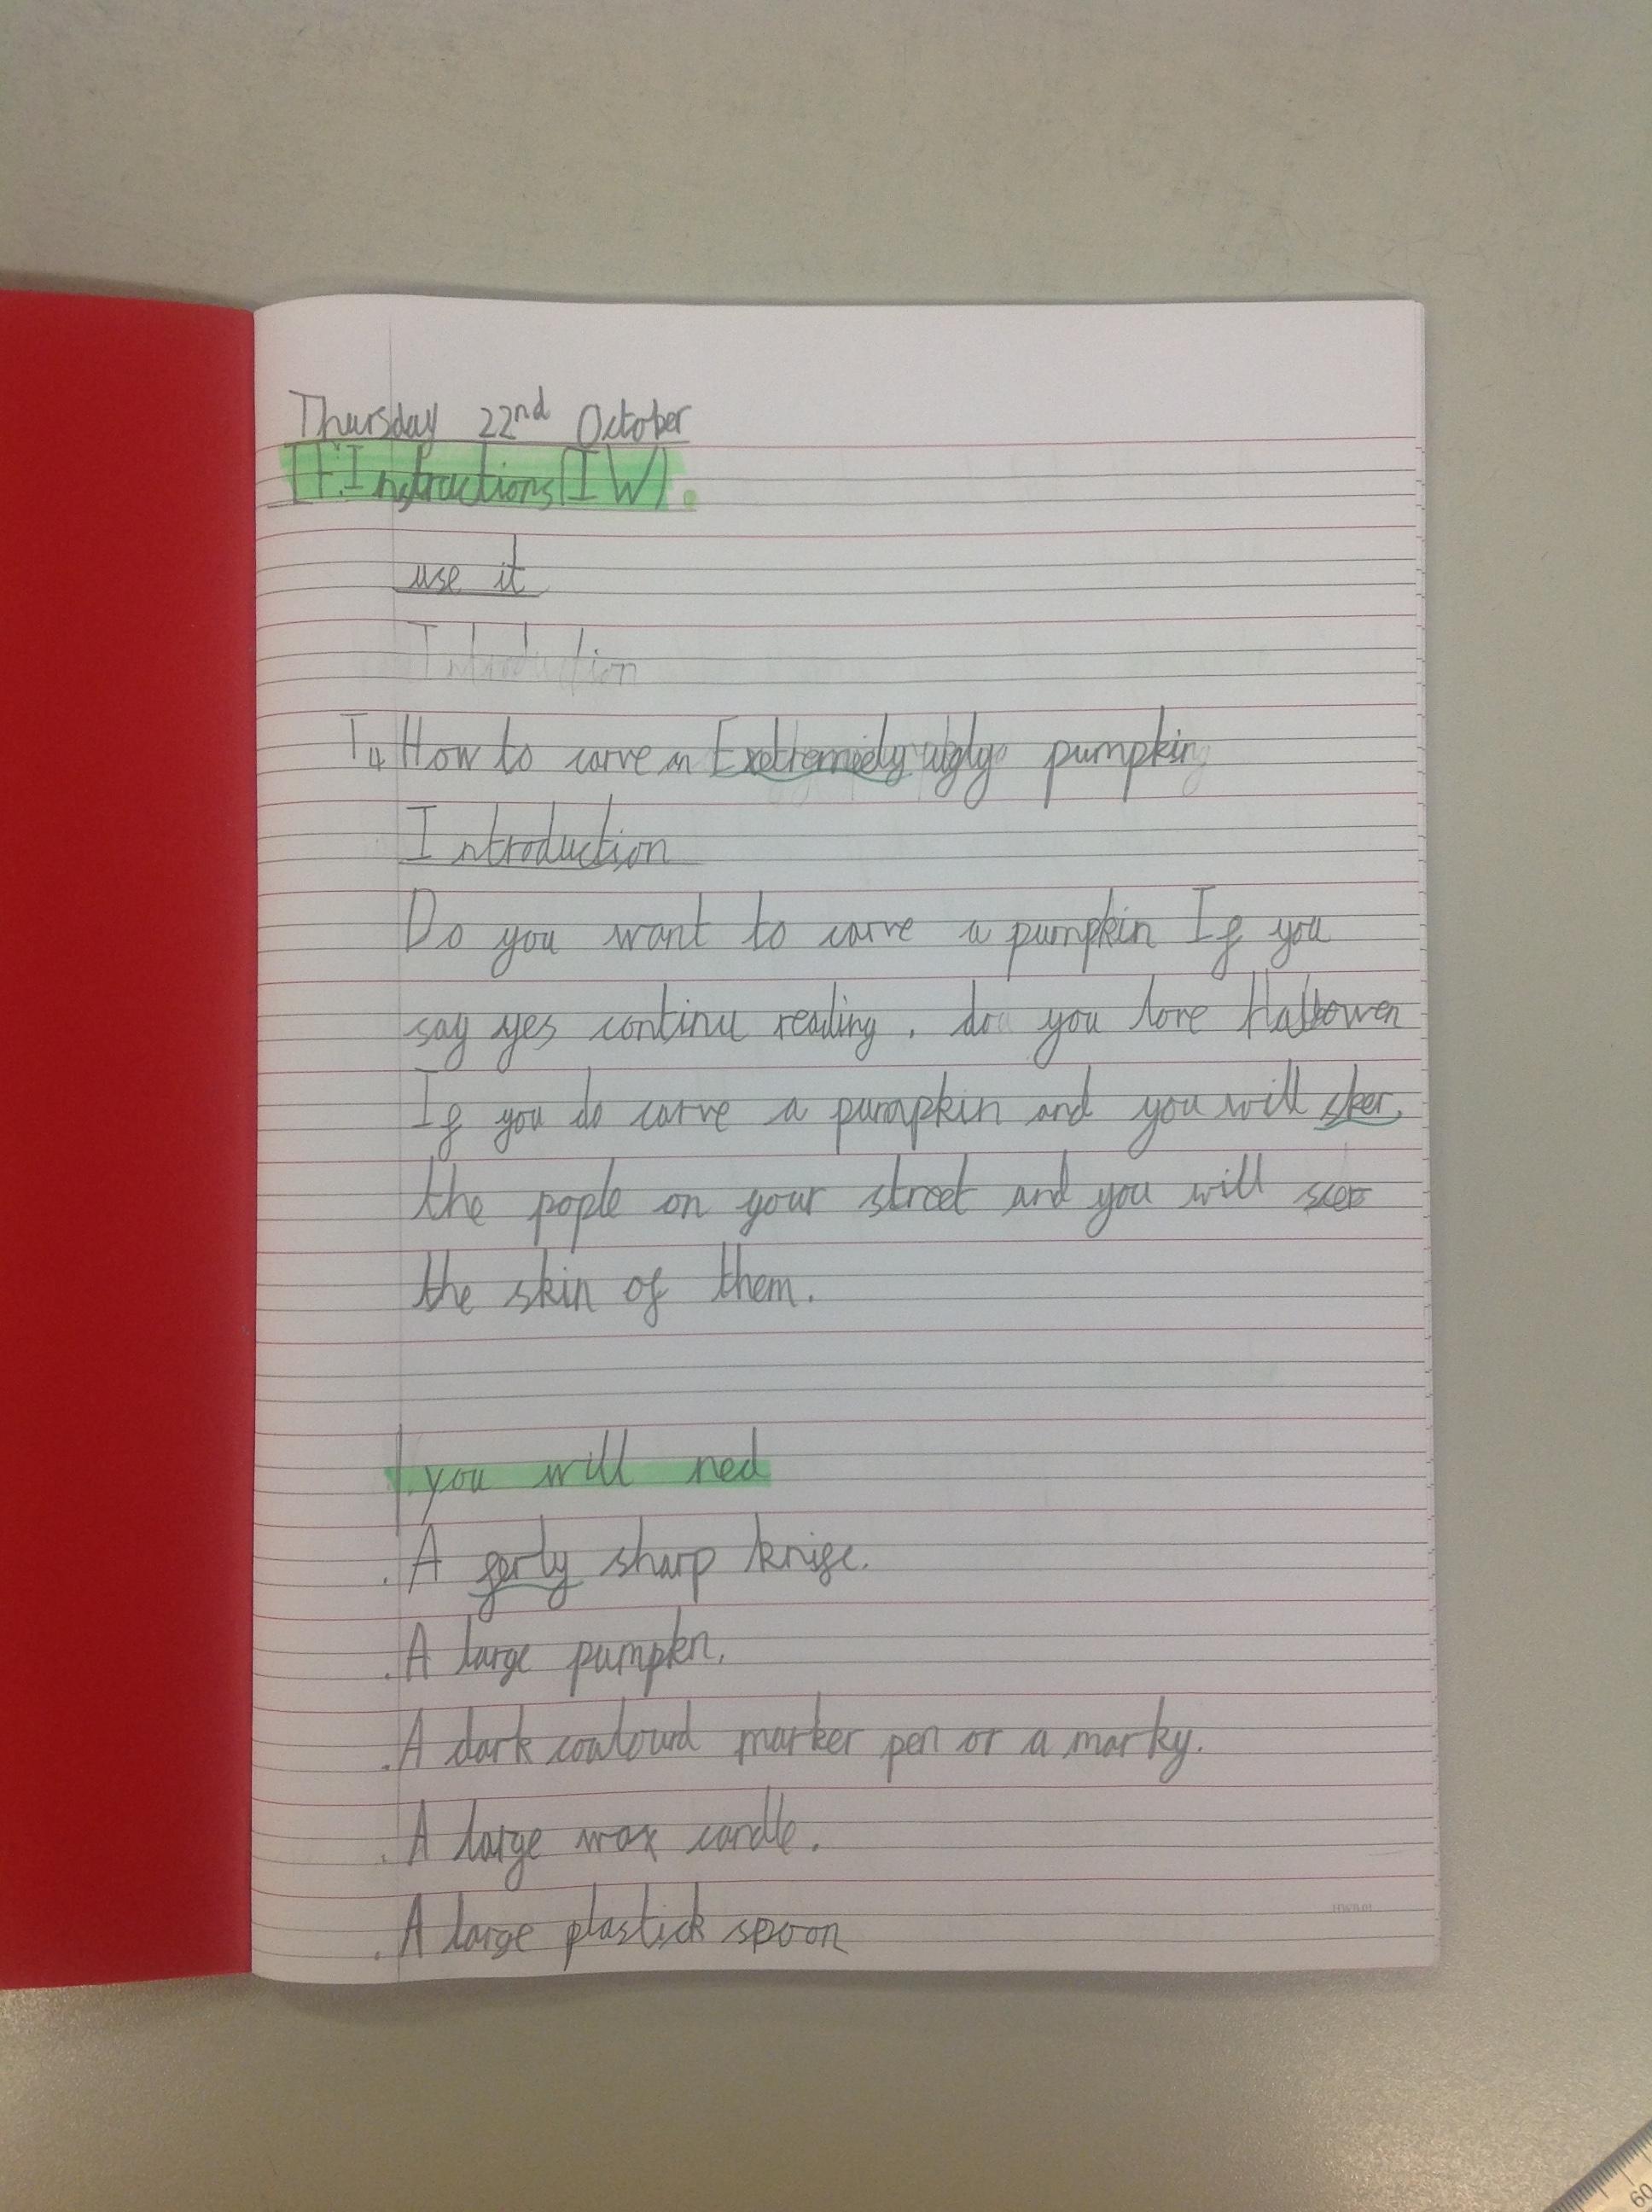 Thursday 22nd October
LF:Instructions(IW).
use it
Introduction
T4 How to carve an Exetremely ugly pumpkin
Introduction
Do you want to carve a pumpkin If you
say yes continu reading. do you love Hallowen
If you do carve a pumpkin and you will sker
the pople on your street and you will
the skin of them.
you will ned
. A ferly sharp knife.
. A large pumpkn.
. A dark coulourd marker pen or a marky.
. A large wax candle.
. A large plastick spoon